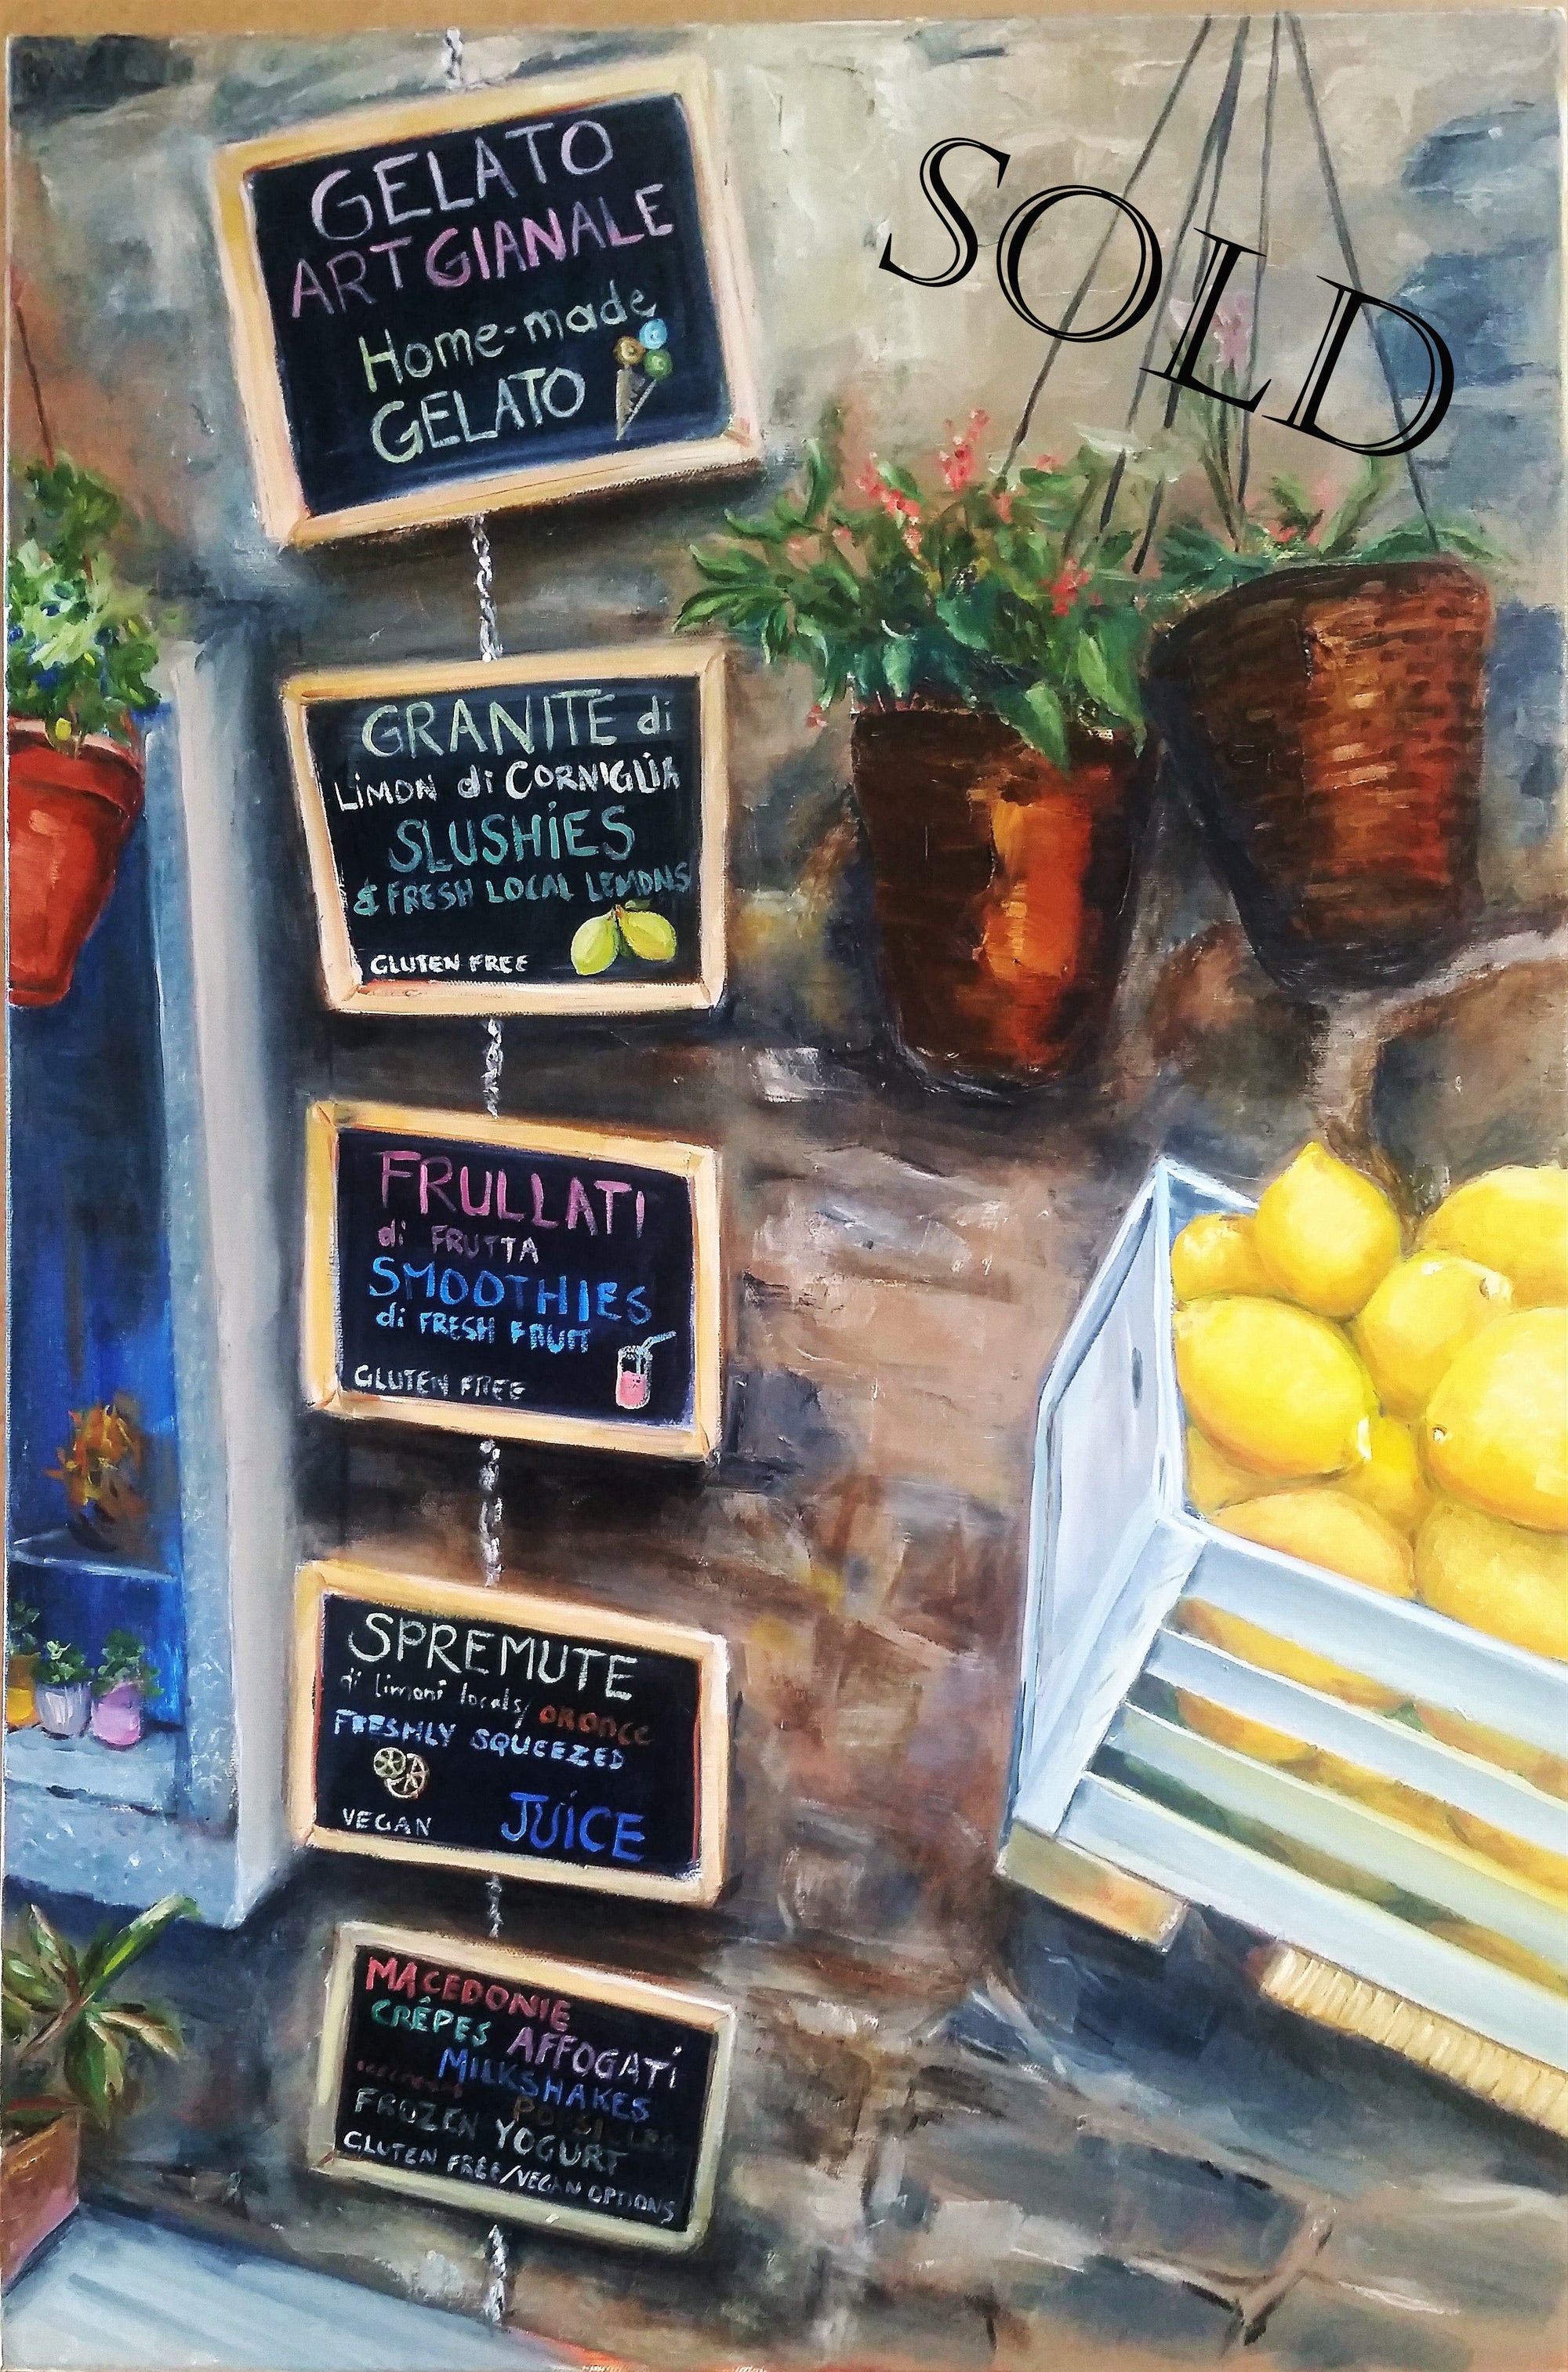 GELATO
ARTGIANALE
Home-made
GELATO
SOLD
GRANITE di
LiMON di CORNIGLIA
SLUSHiES
& FRESH LOCAL LEMONS
GLUTEN FREE
FRULLATI
di FRUTTA
SMOOTHIES
di FRESH FRUIT
GLUTEN FREE
SPREMUTE
di limoni locals/ ORANGE
FRESHLY SQUEEZED
VEGAN
JUICE
MACEDONIE
CRÊPES AFFOGATi
MILKSHAKES
FROZEN YOGURT
GLUTEN FREE/VEGAN OPTIONS